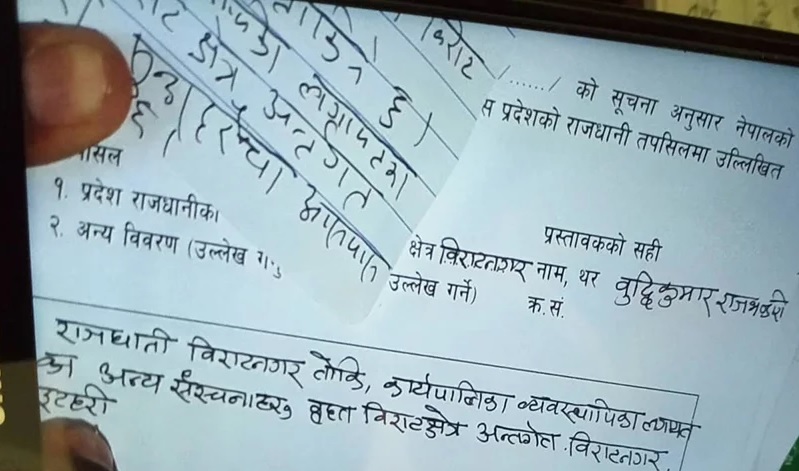 विराट
लगायतका
क्षेत्र अन्तर्गत
/....../ को सूचना अनुसार नेपालको
स प्रदेशको राजधानी तपसिलमा उल्लिखित
१. प्रदेश राजधानीका
२. अन्य विवरण (उल्लेख ग
प्रस्तावकको सही
क्षेत्र विराटनगर नाम, थर बुद्धिकुमार राजभण्डारी
उल्लेख गर्ने) क्र.सं.
राजधानी विराटनगर तोकि, कार्यपालिका व्यवस्थापिका लगायत
का अन्य संरचनाहरु बृहत विराटक्षेत्र अन्तर्गत विराटनगर
इटहरी